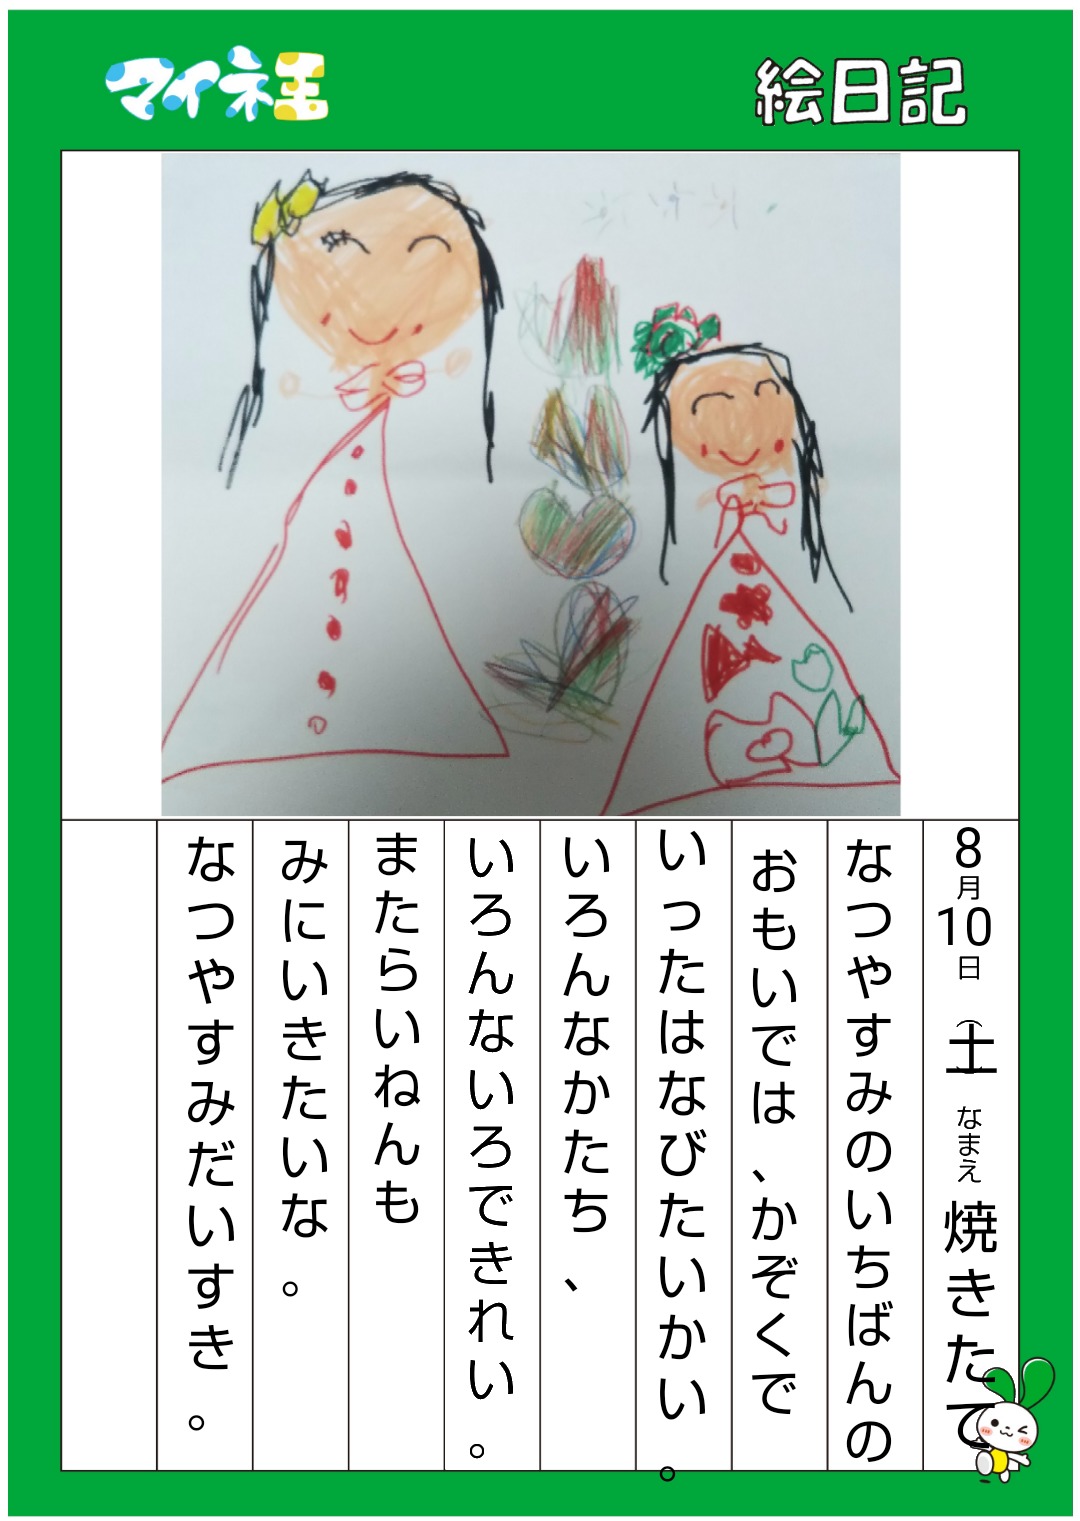 マイネ王
絵日記
8月10日 土 なまえ 焼きたて
なつやすみのいちばんの
おもいでは、かぞくで
いったはなびたいかい。
いろんなかたち、
いろんないろできれい。
またらいねんも
みにいきたいな。
なつやすみだいすき。